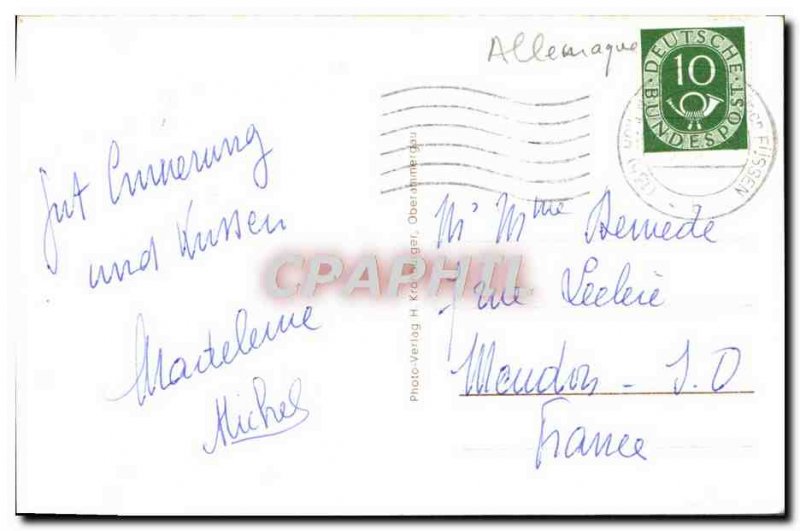 Allemagne
DEUTSCHE
10
BUNDESPOST
FÜSSEN
Gut Erinnerung
und Kussen
Madeleine
Michel
Photo-Verlag H. Kronburger, Oberammergau
CPAPHIL
Mr Mme Bernede
7 rue Leclerc
Meudon - S.O
France